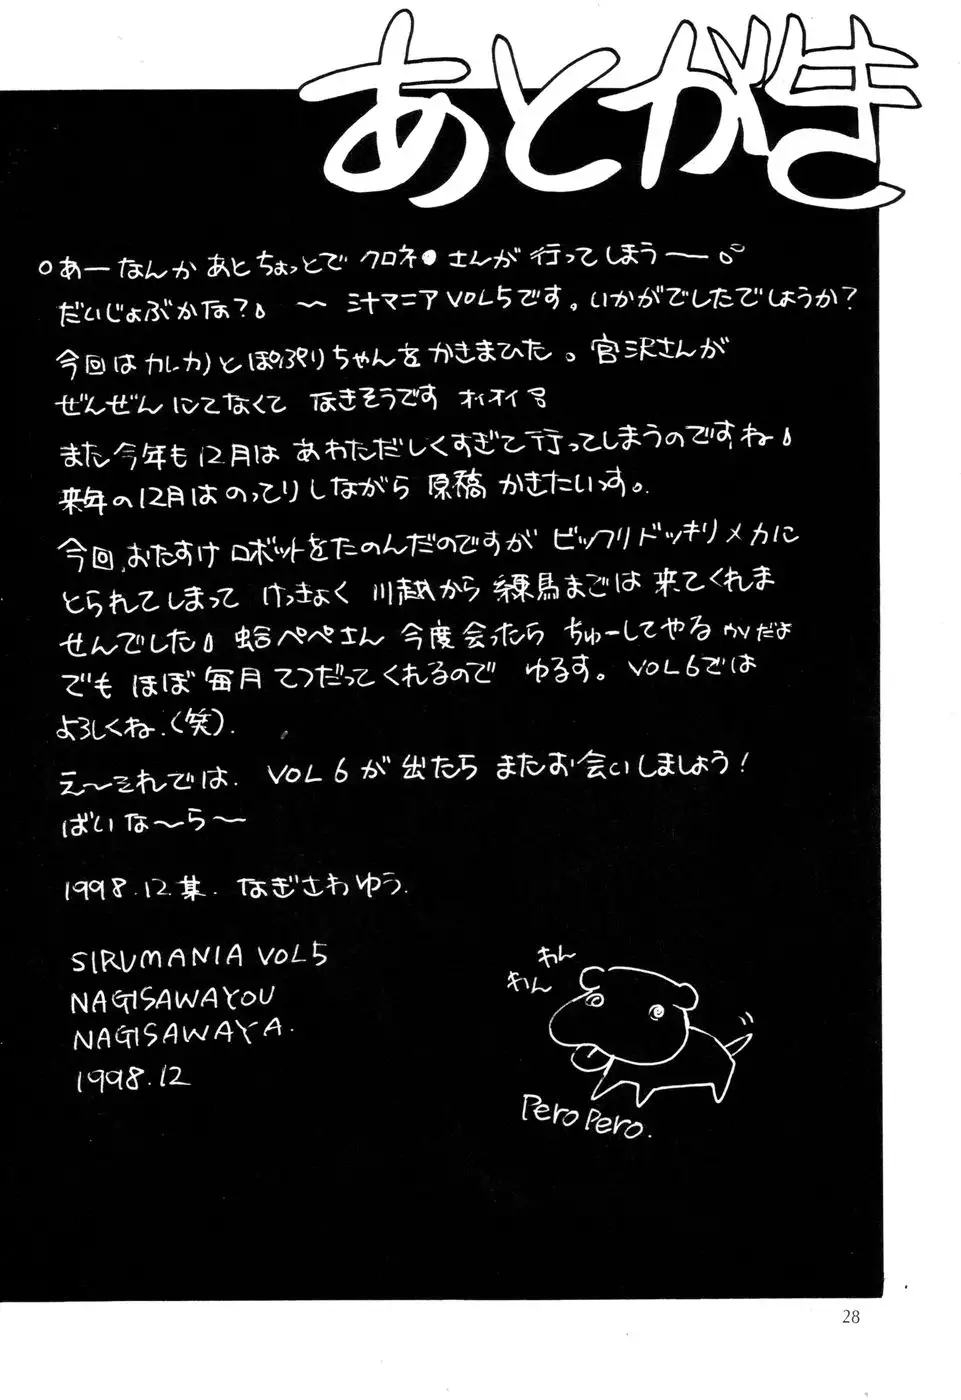 あとがき
あーなんか あとちょっとで クロネ●さんが 行ってしまうー
だいじょぶかな? 〜 汁マニア VOL5です。いかがでしたでしょうか?
今回は カレカノと ぽぷりちゃんを かきまひた。宮沢さんが
ぜんぜん にてなくて なきそうです オイオイ
また今年も12月は あわただしくすぎて 行ってしまうのですね
来年の12月はのってりしながら 原稿 かきたいっす。
今回、おたすけ ロボットをたのんだのですが ビックリドッキリメカに
とられてしまって けっきょく 川越から 練馬までは 来てくれま
せんでした 蛤ペペさん 今度会ったら ちゅーしてやる だよ
でも ほぼ 毎月 てつだってくれるので ゆるす。VOL6では
よろしくね.(笑).
え〜それでは. VOL 6が 出たら またお会いしましょう!
ばいな〜ら〜
1998.12.某. なぎさわゆう.
SIRUMANIA VOL5
NAGISAWAYOU
NAGISAWAYA.
1998.12
わん
わん
Pero Pero.
28